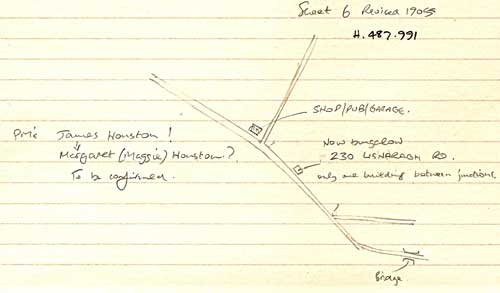 Sheet 6 Revised 1905
H.487.991
SHOP/PUB/GARAGE.
PM's James Houston !
Margaret (Maggie) Houston ?
To be confirmed.
Now bungalow
230 LISNARAGH RD.
only one building between junctions.
Bridge